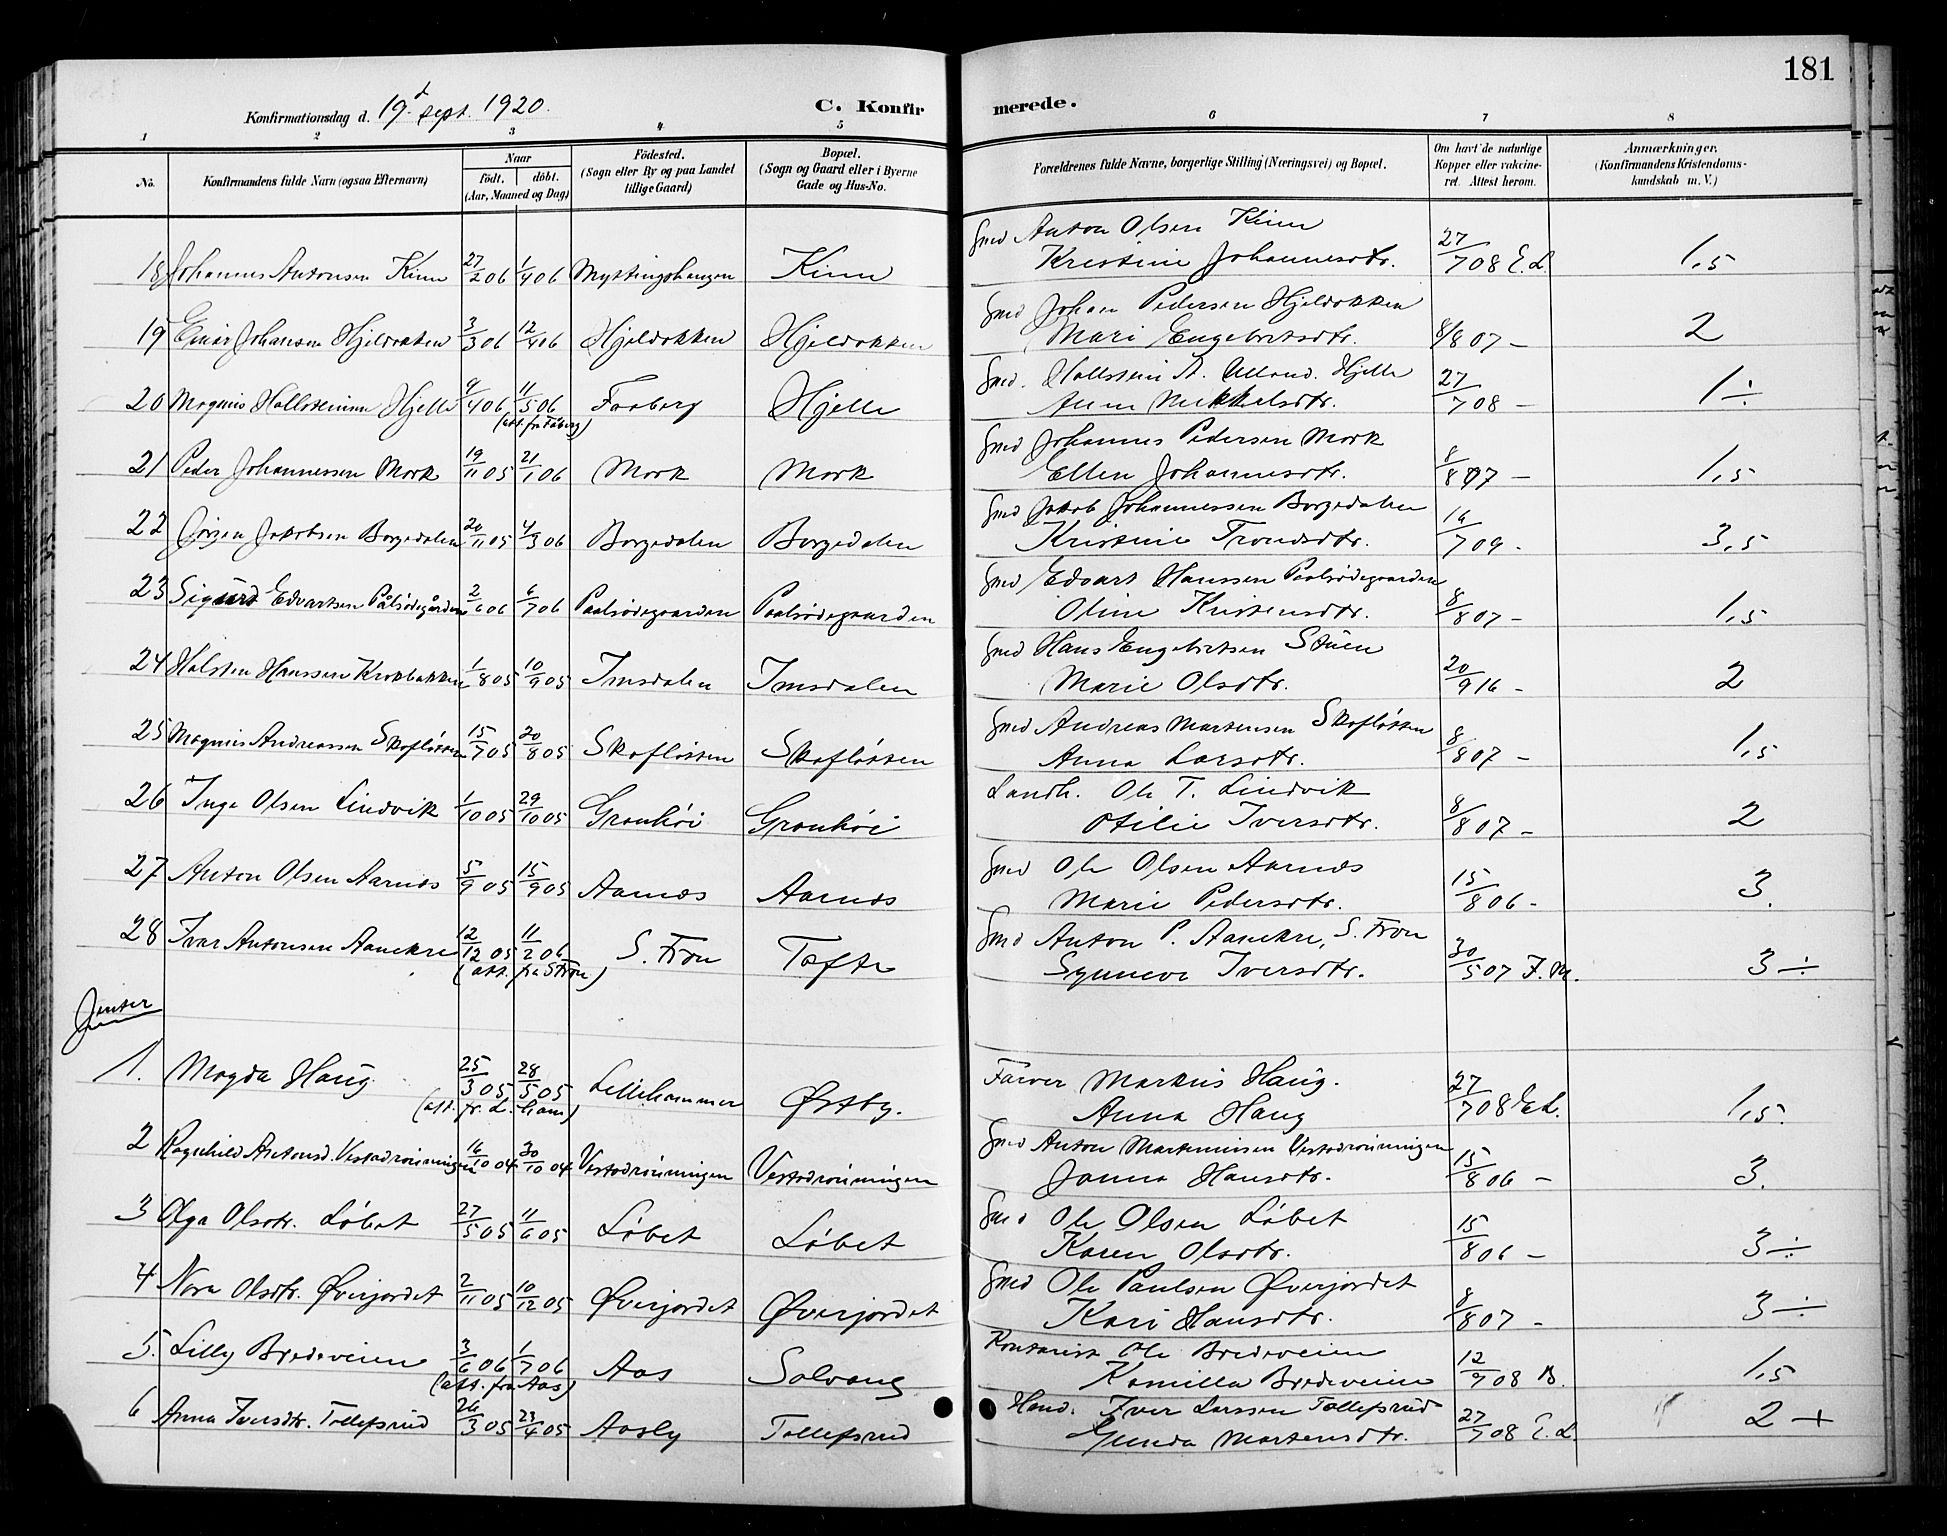 181
Konfirmationsdag d. 19d sept. 1920.
C. Konfir
merede.
1 2 3 4 5 6 7 8
No. Konfirmandens fulde Navn (ogsaa Efternavn) Naar födt. döbt. (Aar, Maaned og Dag) Födested. (Sogn eller By og paa Landet tillige Gaard) Bopæl. (Sogn og Gaard eller i Byerne Gade og Hus-No. Forældrenes fulde Navne, borgerlige Stilling (Næringsvei) og Bopæl. Om havt de naturlige Kopper eller vakcineret. Attest herom. Anmærkninger. (Konfirmandens Kristendomskundskab m. V.)
Gmd Anton Olsen Kinn
18 Johannes Antonsen Kinn 27/2 06 1/4 06 Myttingshaugen Kinn Kristine Johannesdtr. 27/7 08 E.L. 1,5
Gmd Johan Pedersen Hjeldokken
19 Einar Johansen Hjeldokken 3/3 06 12/4 06 Hjeldokken Hjeldokken Mari Engebretsdtr. 8/8 07 – 2
Gmd. Hallstein A. Ulland. Hjelle
20 Magnus Hallsteinsen Hjelle 9/4 06 11/5 06 Faaberg Hjelle Anne Mikkelsdtr. 27/7 08 – 1 ÷
(att. fr. Fåberg)
Gmd Johannes Pedersen Mork
21 Peder Johannessen Mork 19/11 05 21/1 06 Mork Mork Ellen Johannesdtr. 8/8 07 – 1,5
Gmd Jakob Johannessen Borgedalen
22 Jørgen Jakobsen Borgedalen 20/11 05 4/3 06 Borgedalen Borgedalen Kristine Trondsdtr. 16/7 09 - 3,5
Gmd Edvart Hanssen Paalsødegaarden
23 Sigurd Edvartsen Pålsødegården 2/6 06 6/7 06 Paalsødegaarden Paalsødegaarden Oline Kristensdtr. 8/8 07 – 1,5
Gmd Hans Engebretsen Stuen
24 Halsten Hanssen Krokbakken 1/8 05 10/9 05 Imsdalen Imsdalen Marie Olsdtr. 20/9 16 - 2
Gmd Andreas Martensen Skofløtten
25 Magnus Andreassen Skofløtten 15/7 05 20/8 05 Skofløtten Skofløtten Anna Larsdtr. 8/8 07 – 1,5
Landh. Ole T. Lindvik
26 Inge Olsen Lindvik 1/10 05 29/10 05 Granhöi Granhöi Otilie Iversdtr. 8/8 07 – 2
Gmd Ole Olsen Aarnæs
27 Anton Olsen Aarnæs 5/9 05 15/9 05 Aarnæs Aarnæs Marie Pedersdtr. 15/8 06 - 3.
Gmd Anton P. Aanekre, S. Fron
28 Ivar Antonsen Aanekre 12/12 05 11/2 06 S. Fron Tofte Synneve Iversdtr. 30/5 07 F.M. 3 ÷
(att. fra S. Fron)
Jenter
Farver Markus Haug.
1. Magda Haug. 25/3 05 28/5 05 Lillehammer Østby. Anna Haug 27/7 08 E.L. 1,5.
(att. fr. L.ham)
Gmd Anton Martiniusen Vestadrönningen
2 Ragnhild Antonsd. Vestadrönningen 16/10 04 30/10 04 Vestadrönningen Vestadrönningen Janna Hansdtr. 15/8 06 – 3.
Gmd Ole Olsen Løbet
3 Olga Olsdtr. Løbet 27/5 05 11/6 05 Løbet Løbet Karen Olsdtr. 15/8 06 – 3 ÷
Gmd Ole Paulsen Øverjordet
4 Nora Olsdtr. Øverjordet 2/11 05 10/12 05 Øverjordet Øverjordet Kari Hansdtr. 8/8 07 – 3 ÷
Kontorist Ole Bredeveien
5. Lilly Bredeveien 3/6 06 1/7 06 Aas Solvang Kamilla Bredeveien 12/9 08 B. 1,5
(att. fra Aas)
Hand. Iver Larssen Tollefsrud
6 Anna Iversdtr. Tollefsrud 26/3 05 23/4 05 Aasly Tollefsrud Gunda Martensdtr. 27/7 08 E.L. 2 +